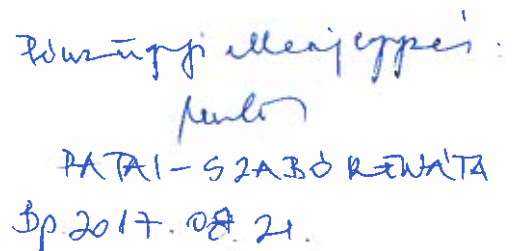 Pénzügyi ellenjegyzés.
PATAI-SZABÓ RENÁTA
Bp. 2017. 08. 21.